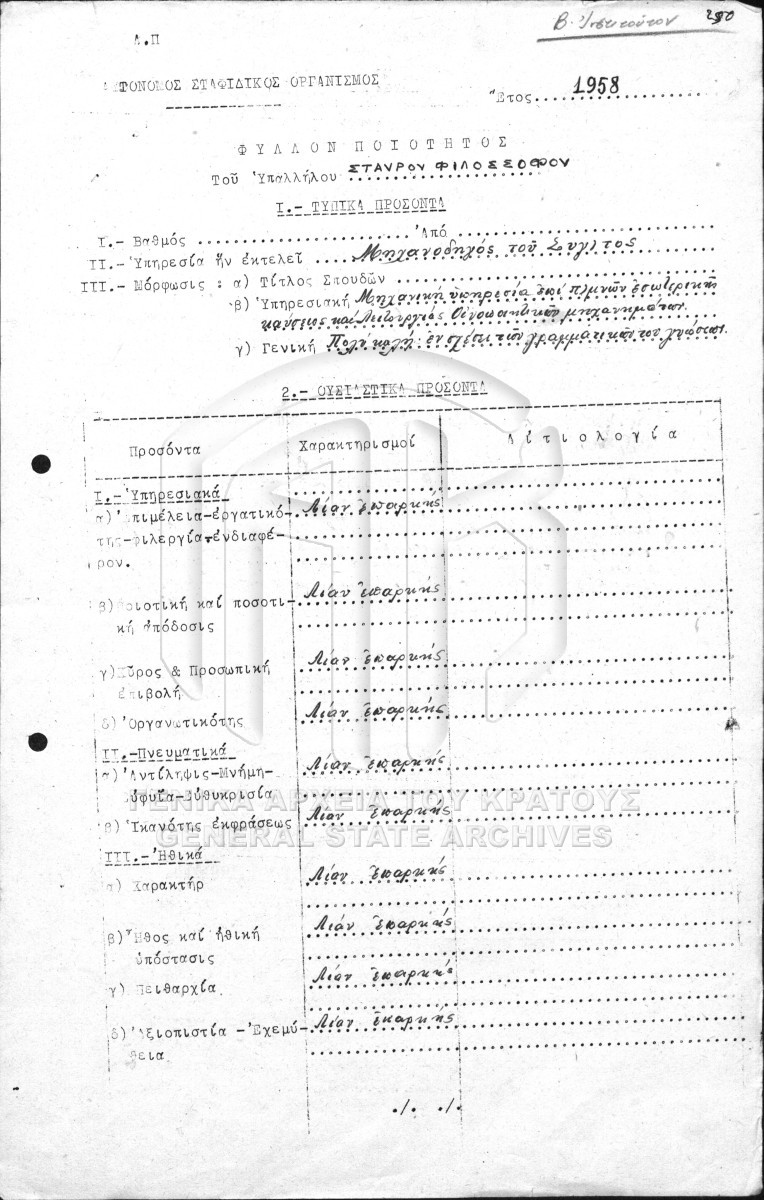 Β. Ινστιτούτον 290
Α.Π
ΑΥΤΟΝΟΜΟΣ ΣΤΑΦΙΔΙΚΟΣ ΟΡΓΑΝΙΣΜΟΣ
Ἔτος 1958
ΦΥΛΛΟΝ ΠΟΙΟΤΗΤΟΣ
Τοῦ Ὑπαλλήλου ΣΤΑΥΡΟΥ ΦΙΛΟΣΣΟΦΟΥ
Ι.- ΤΥΠΙΚΑ ΠΡΟΣΟΝΤΑ
Ι.- Βαθμός Ἀπό
ΙΙ.- Ὑπηρεσία ἥν ἐκτελεῖ Μηχανοδηγός τοῦ Συγ/τος
ΙΙΙ.- Μόρφωσις : α) Τίτλος Σπουδῶν
β) Ὑπηρεσιακή Μηχανική ὑπηρεσία ἐπί ἐσωτερικῆς
καύσεως καί Λειτουργίας Οἰνοποιητικῶν μηχανημάτων
γ) Γενική Πολύ καλή ἐν σχέσει τῶν γραμματικῶν του γνώσεων
2.- ΟΥΣΙΑΣΤΙΚΑ ΠΡΟΣΟΝΤΑ
Προσόντα Χαρακτηρισμοί Αἰτιολογία
Ι.- Ὑπηρεσιακά
α) Ἐπιμέλεια-ἐργατικό- Λίαν ἐπαρκής
της-φιλεργία-ἐνδιαφέ-
ρον.
β) Ποιοτική καί ποσοτι- Λίαν ἐπαρκής
κή ἀπόδοσις
γ) Κῦρος & Προσωπική Λίαν ἐπαρκής
ἐπιβολή
δ) Ὀργανωτικότης Λίαν ἐπαρκής
ΙΙ.-Πνευματικά
α) Ἀντίληψις-Μνήμη- Λίαν ἐπαρκής
Εὐφυΐα-Εὐθυκρισία
ΓΕΝΙΚΑ ΑΡΧΕΙΑ ΤΟΥ ΚΡΑΤΟΥΣ
β) Ἱκανότης ἐκφράσεως Λίαν ἐπαρκής
GENERAL STATE ARCHIVES
ΙΙΙ.-Ἠθικά
α) Χαρακτήρ Λίαν ἐπαρκής
β) Ἦθος καί ἠθική Λίαν ἐπαρκής
ὑπόστασις
γ) Πειθαρχία Λίαν ἐπαρκής
δ) Ἀξιοπιστία -Ἐχεμύ- Λίαν ἐπαρκής
θεια
./. ./.